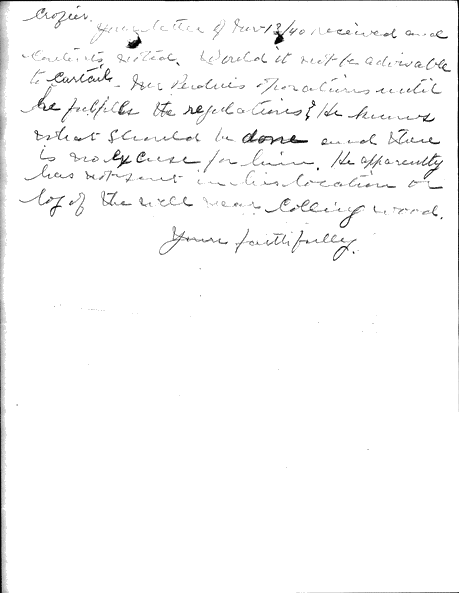 Crozier.
Your letter of Nov 13/40 received and
contents noted. Would it not be advisable
to curtail Mr Perdue's operations until
he fulfills the regulations? He knows
what should be done and there
is no excuse for him. He apparently
has not sent in his location or
log of the well near Collingwood.
Yours faithfully.